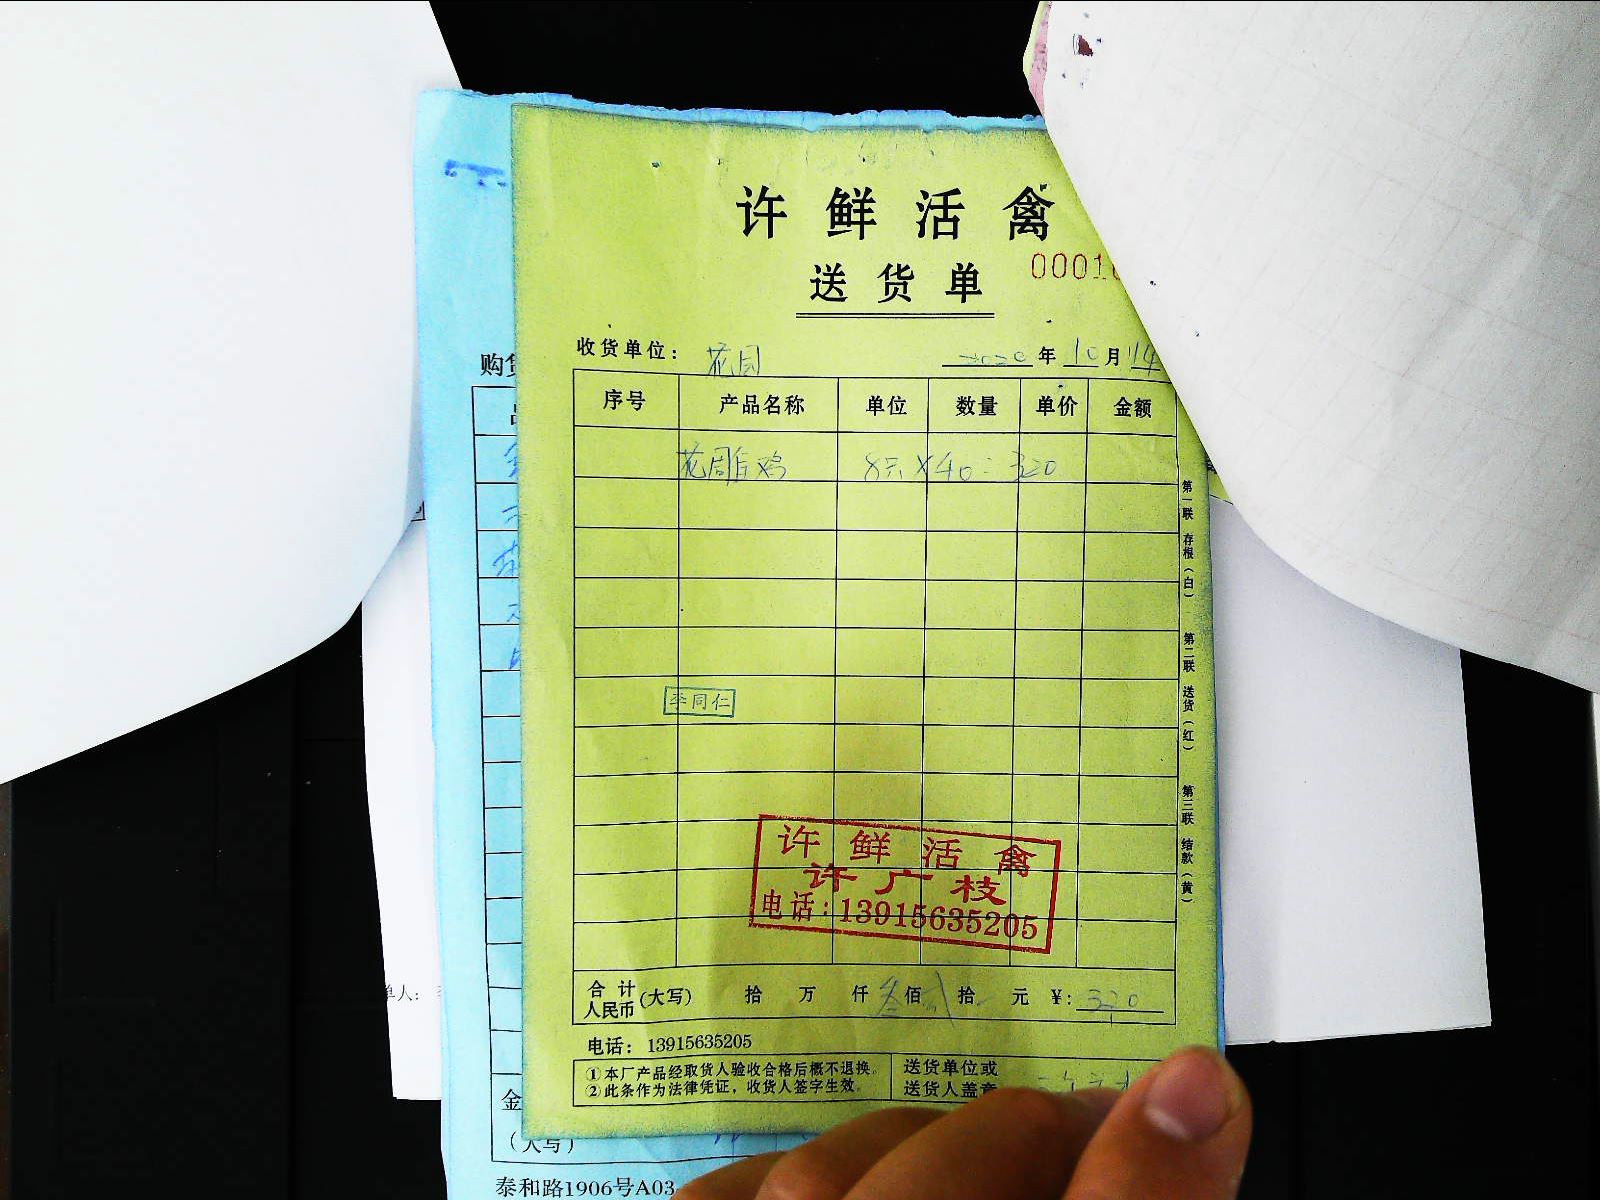 许鲜活禽
送货单
0001
收货单位：花园 2020年10月14
序号 产品名称 单位 数量 单价 金额
8只×40=320
李同仁
许鲜活禽
许广枝
电话：13915635205
合计人民币(大写) 拾 万 仟 叁佰 贰拾 元 ¥：320
电话：13915635205
①本厂产品经取货人验收合格后概不退换。
②此条作为法律凭证，收货人签字生效。
送货单位或
送货人盖章
第一联 存根（白）
第二联 送货（红）
第三联 结款（黄）
购货
单人：
金
（大写）
泰和路1906号A03